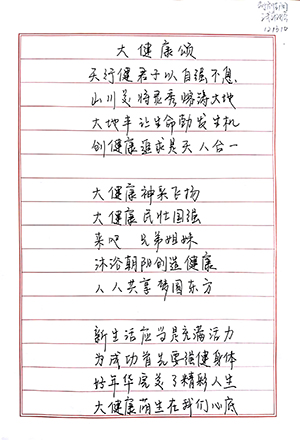 大健康颂
天行健君子以自强不息
山川灵将灵秀洒满大地
大地丰让生命勃发生机
创健康追求是天人合一
大健康神采飞扬
大健康民壮国强
来吧 兄弟姐妹
沐浴朝阳创造健康
人人共享梦圆东方
新生活应当是充满活力
为成功首先要强健身体
好年华完美了精彩人生
大健康萌生在我们心底